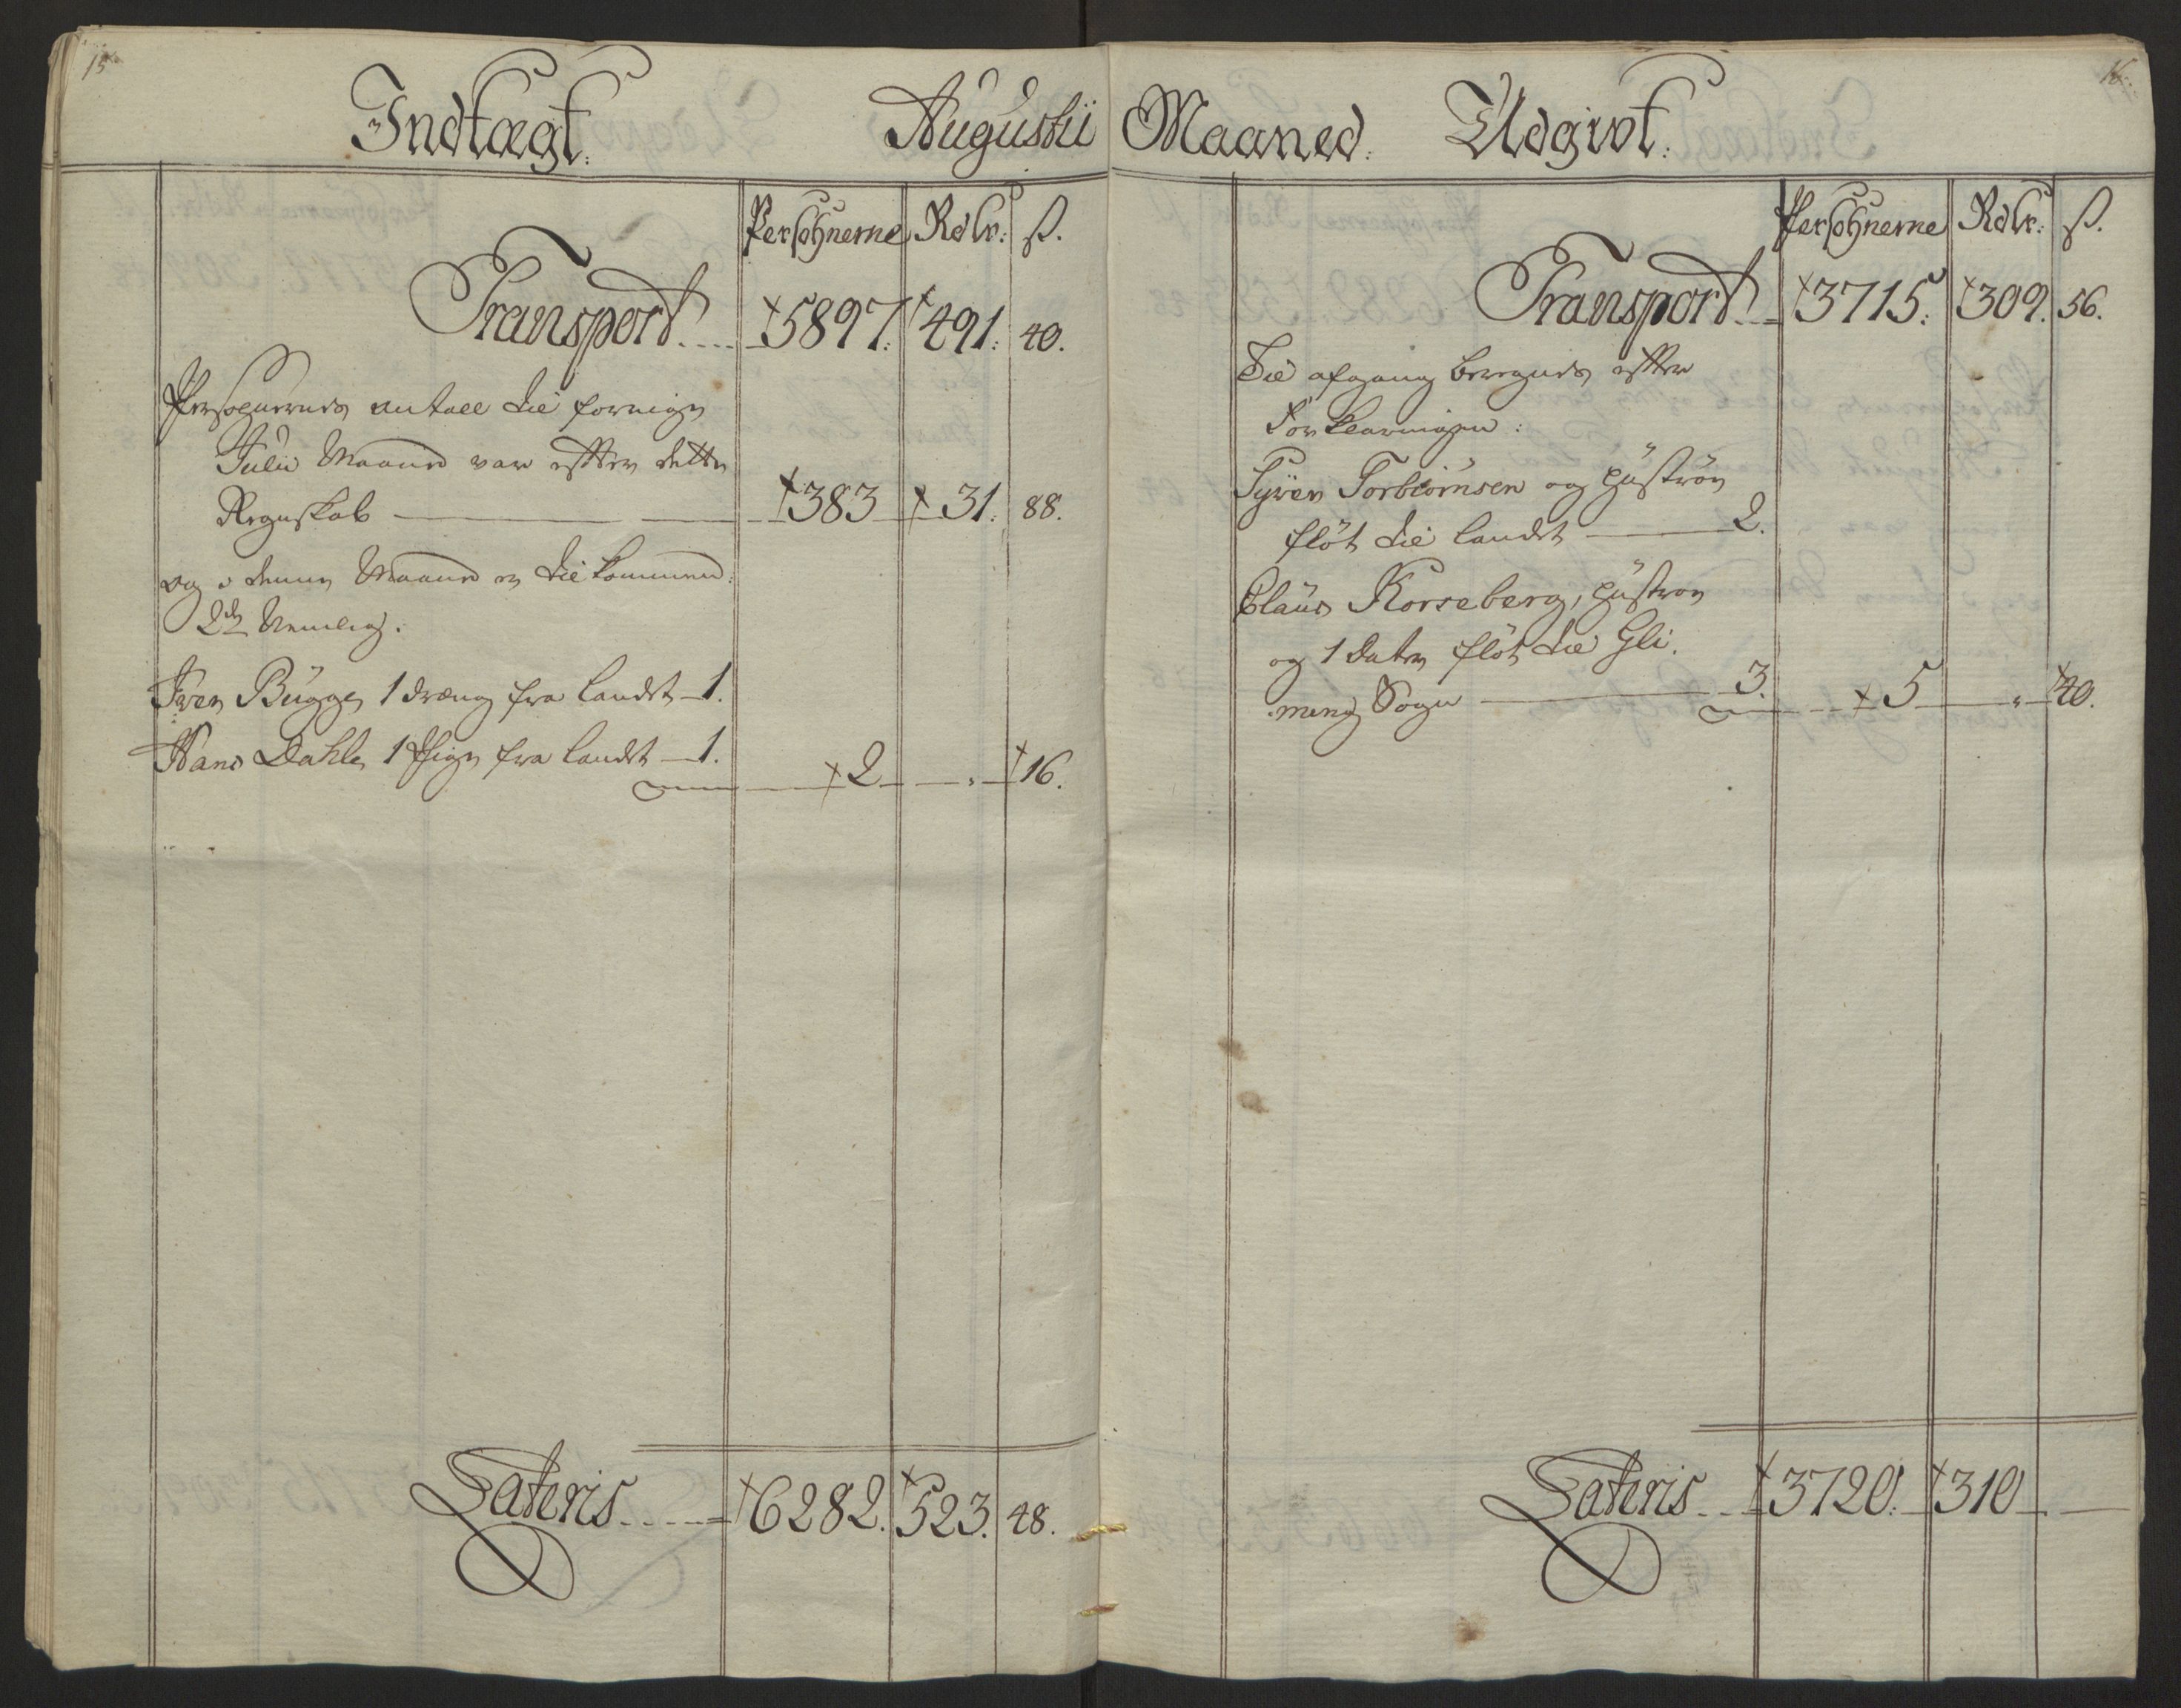 15
Indtægt.
Augustii
Persohnerne Rdlr: ß.
Transport.... †5897. †491. 40.
Persohnernes antall till forrige
Julii Maaned var efter dette
Regnskab — †383 † 31. 88.
og i denne Maaned er till kommen:
2de Nemlig.
Iver Bugge, 1 dræng fra landet — 1.
Hans Dahle, 1 Pige fra landet — 1. † 2 — " — †16.
Lateris..... †6282. †523. 48.
16.
Maaned. Udgivt.
Persohnerne Rdlr. ß.
Transport... †3715. †309. 56.
Till afgang beregnes efter
Forklaringen:
Syver Torbiörnsen og huströn
flöt till landet — 2.
Claus Korseberg, hustron
og 1 dater flöt till Gli.
ming Sogn — 3. † 5 — " — †40.
Lateris... †3720. †310 — . —